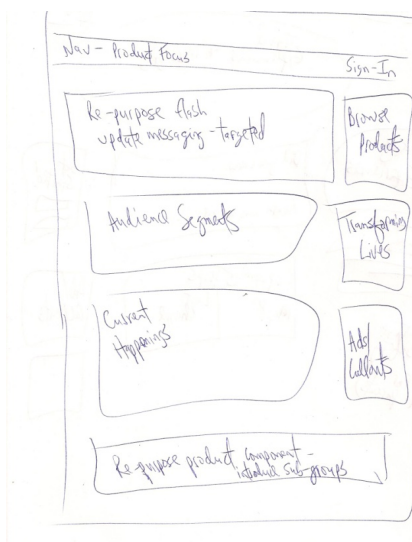 Nav - Product Focus
Sign-In
Re-purpose flash
update messaging - targeted
Browse
Products
Audience Segments
Transforming
Lives
Current
Happenings
Ads/
Callouts
Re-purpose product component -
introduce sub-groups